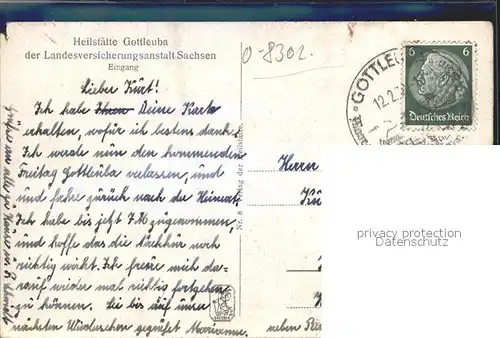 Heilstätte Gottleuba
der Landesversicherungsanstalt Sachsen
Eingang
0-8302.
GOTTLEU
12.2.3
6 6
Deutsches Reich
Lieber Kurt!
Ich habe Ihren Deine Karte
erhalten, wofür ich bestens danke.
Ich werde nun den kommenden
Freitag Gottleuba verlassen, und
und fahre zurück nach der Heimat.
Ich habe bis jetzt zugenommen,
und hoffe das die Nachkur noch
richtig wirkt. Ich freue mich da-
rauf wieder mal richtig fortgehen
zu können. Sei bis auf unser
nächsten Wiedersehen gegrüßt Marianne.
Nr. 8 Verlag der Heilstätte
Herrn
neben
privacy protection
Datenschutz